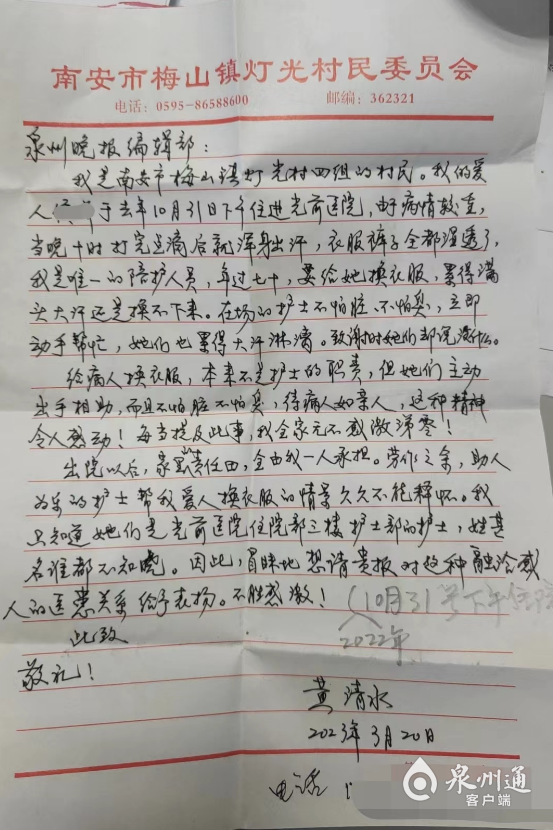 南安市梅山镇灯光村民委员会
电话:0595-86588600 邮编:362321
泉州晚报编辑部:
我是南安市梅山镇灯光村四组的村民。我的爱
人 于去年10月31日下午住进光前医院,由于病情较重,
当晚十时打完点滴后就浑身出汗,衣服裤子全都湿透了,
我是唯一的陪护人员,年过七十,要给她换衣服,累得满
头大汗还是换不下来。在场的护士不怕脏、不怕臭,立即
动手帮忙,她们也累得大汗淋漓。致谢时她们都说没什么。
给病人换衣服,本来不是护士的职责,但她们主动
出手相助,而且不怕脏不怕臭,待病人如亲人,这种精神
令人感动!每当提及此事,我全家无不感激涕零!
出院以后,家里责任田,全由我一人承担。劳作之余,助人
为乐的护士帮我爱人换衣服的情景久久不能释怀。我
只知道她们是光前医院住院部三楼护士部的护士,姓甚
名谁都不知晓。因此,冒昧地想请贵报对这种融洽感
人的医患关系给予表扬。不胜感激!
(10月31号下午住院
2022年
此致
敬礼!
黄清水
2023年3月20日
电话
泉州通
客户端